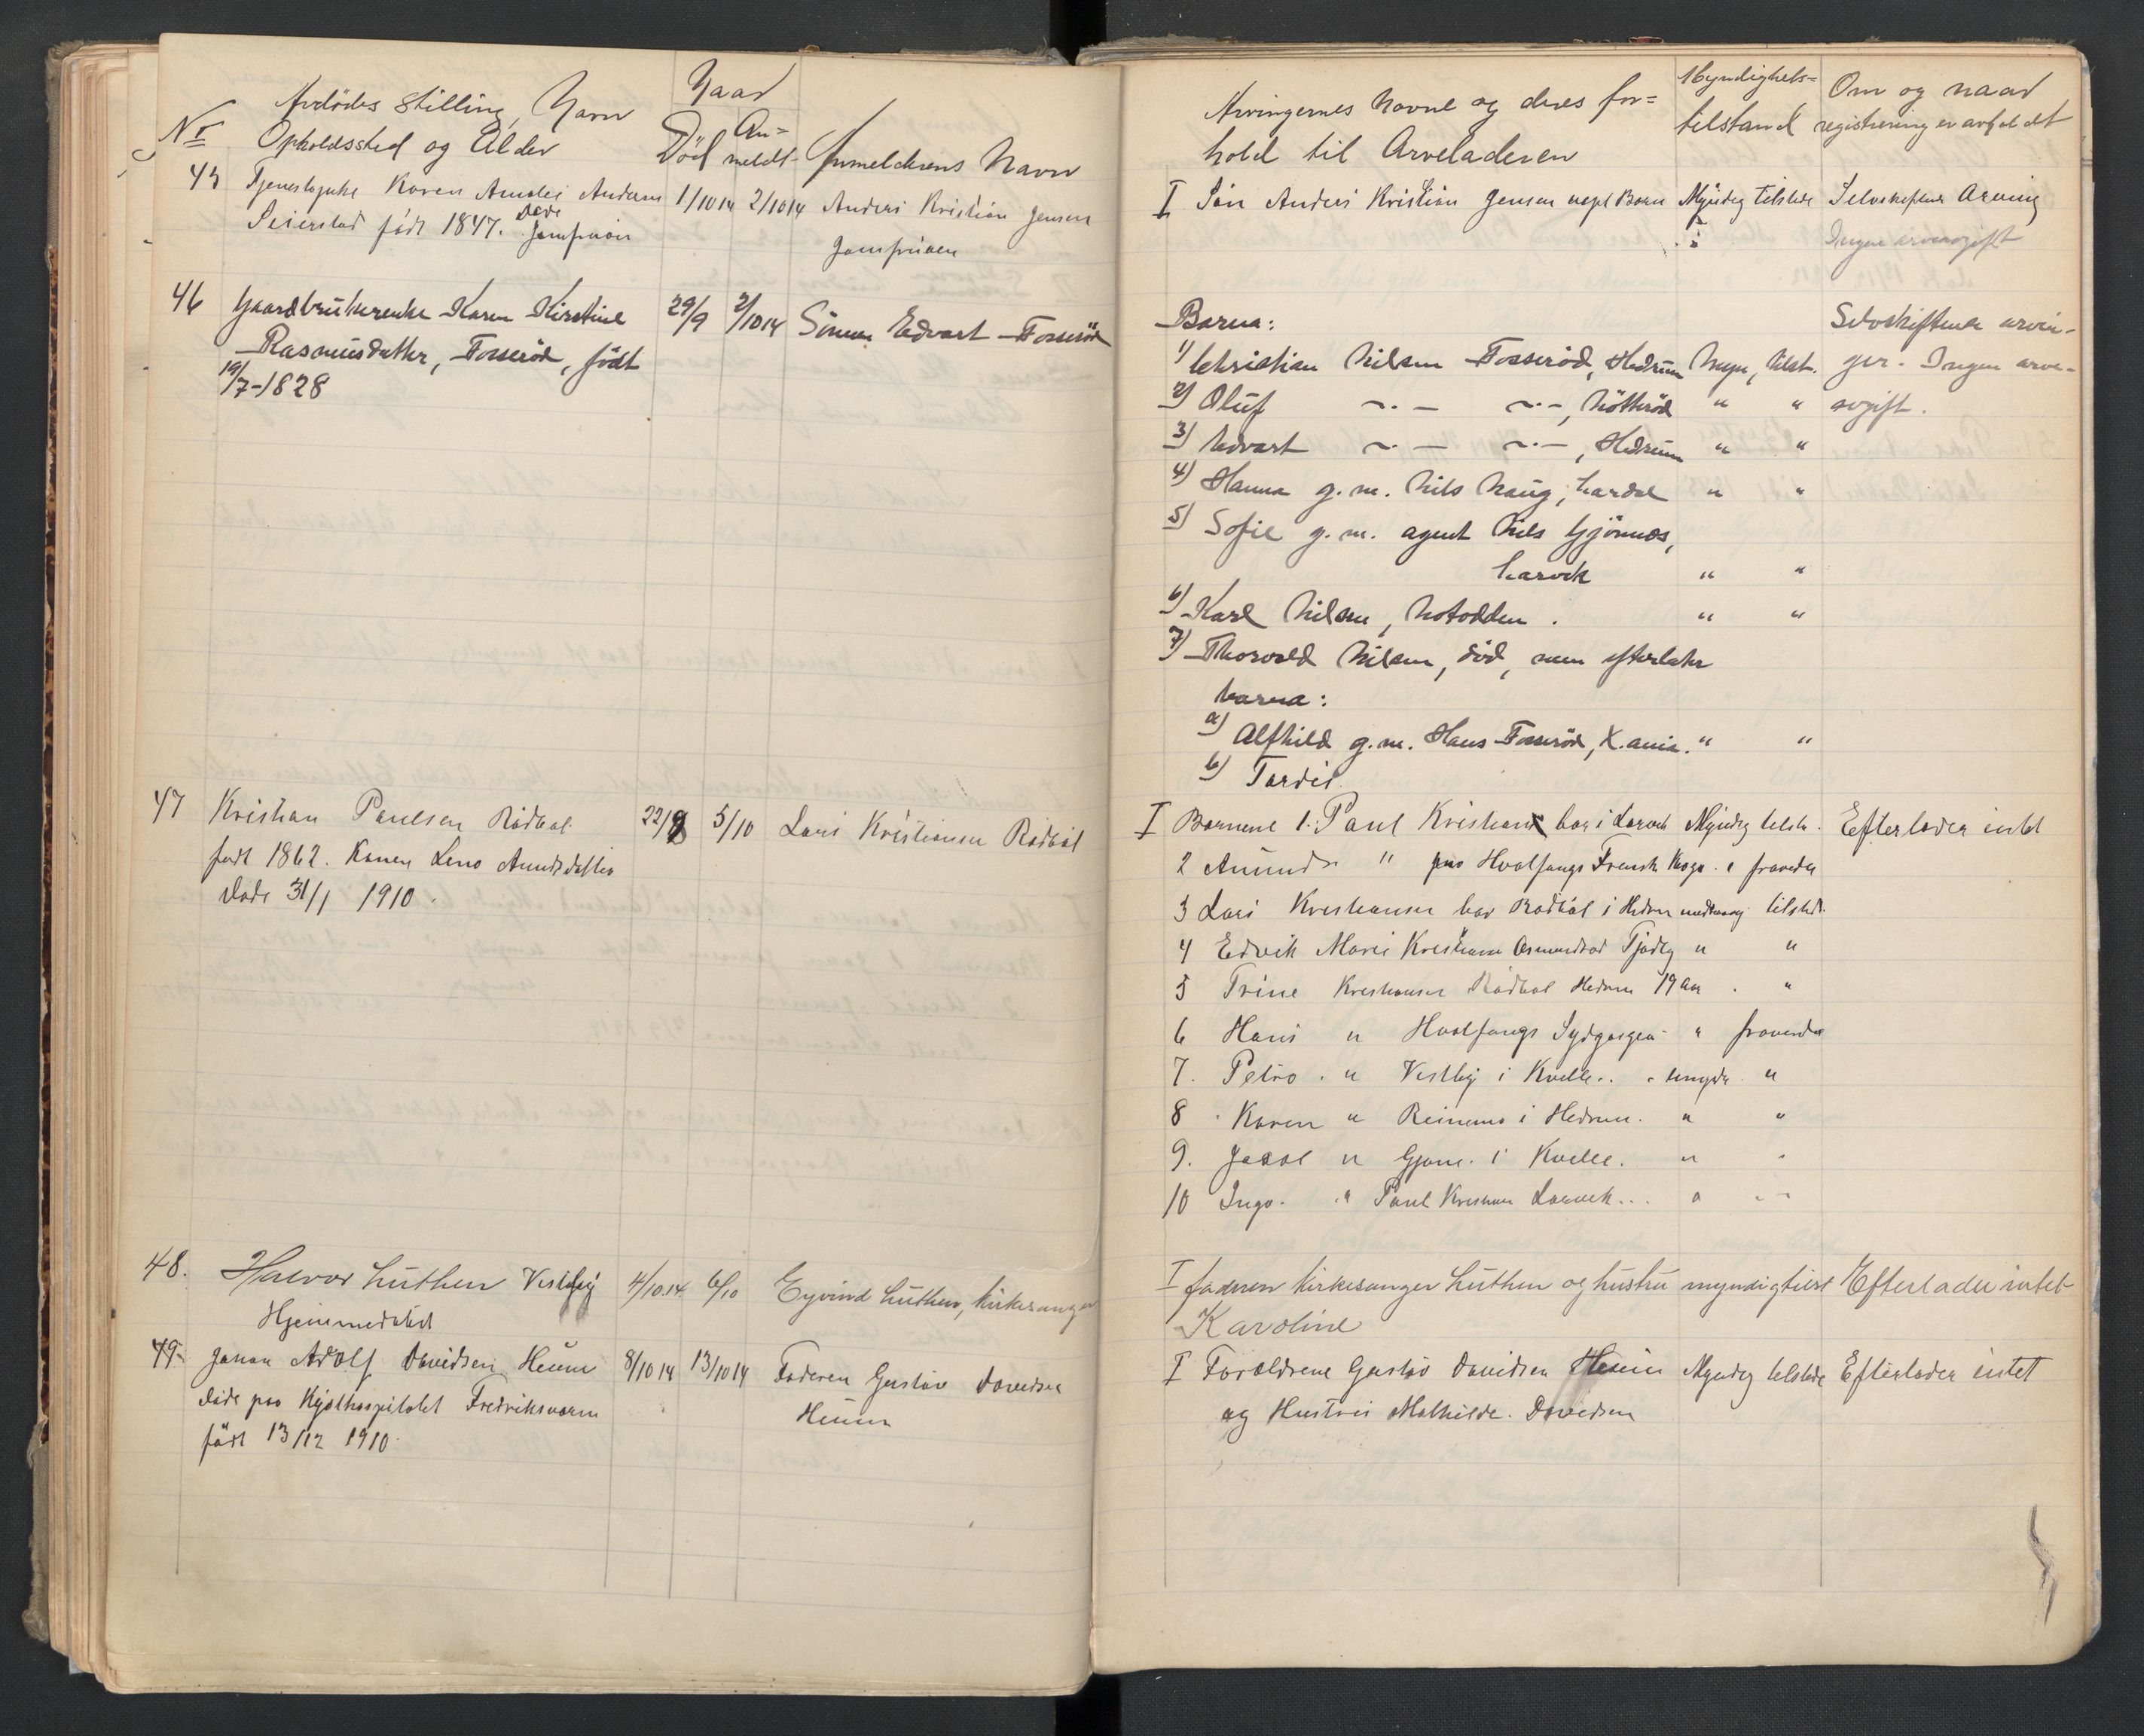 Avdödes Stilling, Navn
Opholdssted og Alder
No
Naar
Död
An=
meldt
Anmelderens Navn
45 Tjenestepike Karen Amalie Anders
Seierstad født 1847. Døde
1/10 14 2/10 14 Anders Kristian Jensen
46 Gaardbrukerenke Karen Kirstine
Rasmusdatter, Fosseröd, födt
19/7-1828
29/9 2/10 14 Sönnen Edvart Fosseröd
47 Kristian Paulsen Rødbøl
født 1862. Konen Lena Amundsdatter
Døde 31/1 1910.
22/9 5/10 Lars Kristiansen Rødbøl
48. Halvor Luthen Vestby
Hjemmedöbt
4/10.14 6/10 Eyvind Luthen, kirkesanger
49. Johan Adolf Davidsen Heum
døde paa Kysthospitalet Fredriksværn
født 13/12 1910.
8/10 14 13/10 14 Faderen Gustav Davidsen
Heum
Arvingernes Navne og deres for=
hold til Arveladeren
Myndighets=
tilstand
Om og naar
registrering er avholdt
I Søn Anders Kristian Jensen Myndig tilstede Selvskiftende Arving
Ingen arveavgift
Barna:
1) Christian Nilsen Fosseröd, Hedrum Mynd, tilst.
Selvskiftende arvin-
ger. Ingen arve-
avgift.
2) Oluf ~·- ~·-, Nötteröd " "
3) Edvart ~·- ~·-, Hedrum " "
4) Hanna g.m. Nils Haug, Lardal " "
5) Sofie g.m. agent Nils Gjönnes,
Larvik " "
6) Karl Nilsen, Notodden. " "
7) Thorvald Nilsen, död, men efterlater
barna:
a) Alfhild g.m. Hans Fosseröd, X.ania. " "
b) Tordis.
I Barnene 1. Paul Kristians bor i Larvik Myndig tilste. Efterlader intet
2 Amund " paa Hvalfangst Fransk Kogo fraværende
3 Lars Kristiansen bor Rødbøl i Hedrum tilstede
4 Edvik Marie Kristiansen Tjødling " "
5 Trine Kristiansen Rødbøl Hedrum 19 Aar . "
6 Hans " Hvalfangst Sydgeorgia " fraværende
7. Petra . " Vestby i Kvelle.. umyndig "
8 Karen " Reinemo i Hedrum. " "
9. Jakob " Gjøne i Kvelle. " "
10 Inga. " Paul Kristian Larvik... "
I faderen kirkesanger Luthen og hustru myndig tilst Efterlader intet
Karoline
I Forældrene Gustav Davidsen Heum Myndig tilstede Efterlader intet
og Hustru Mathilde Davidsen